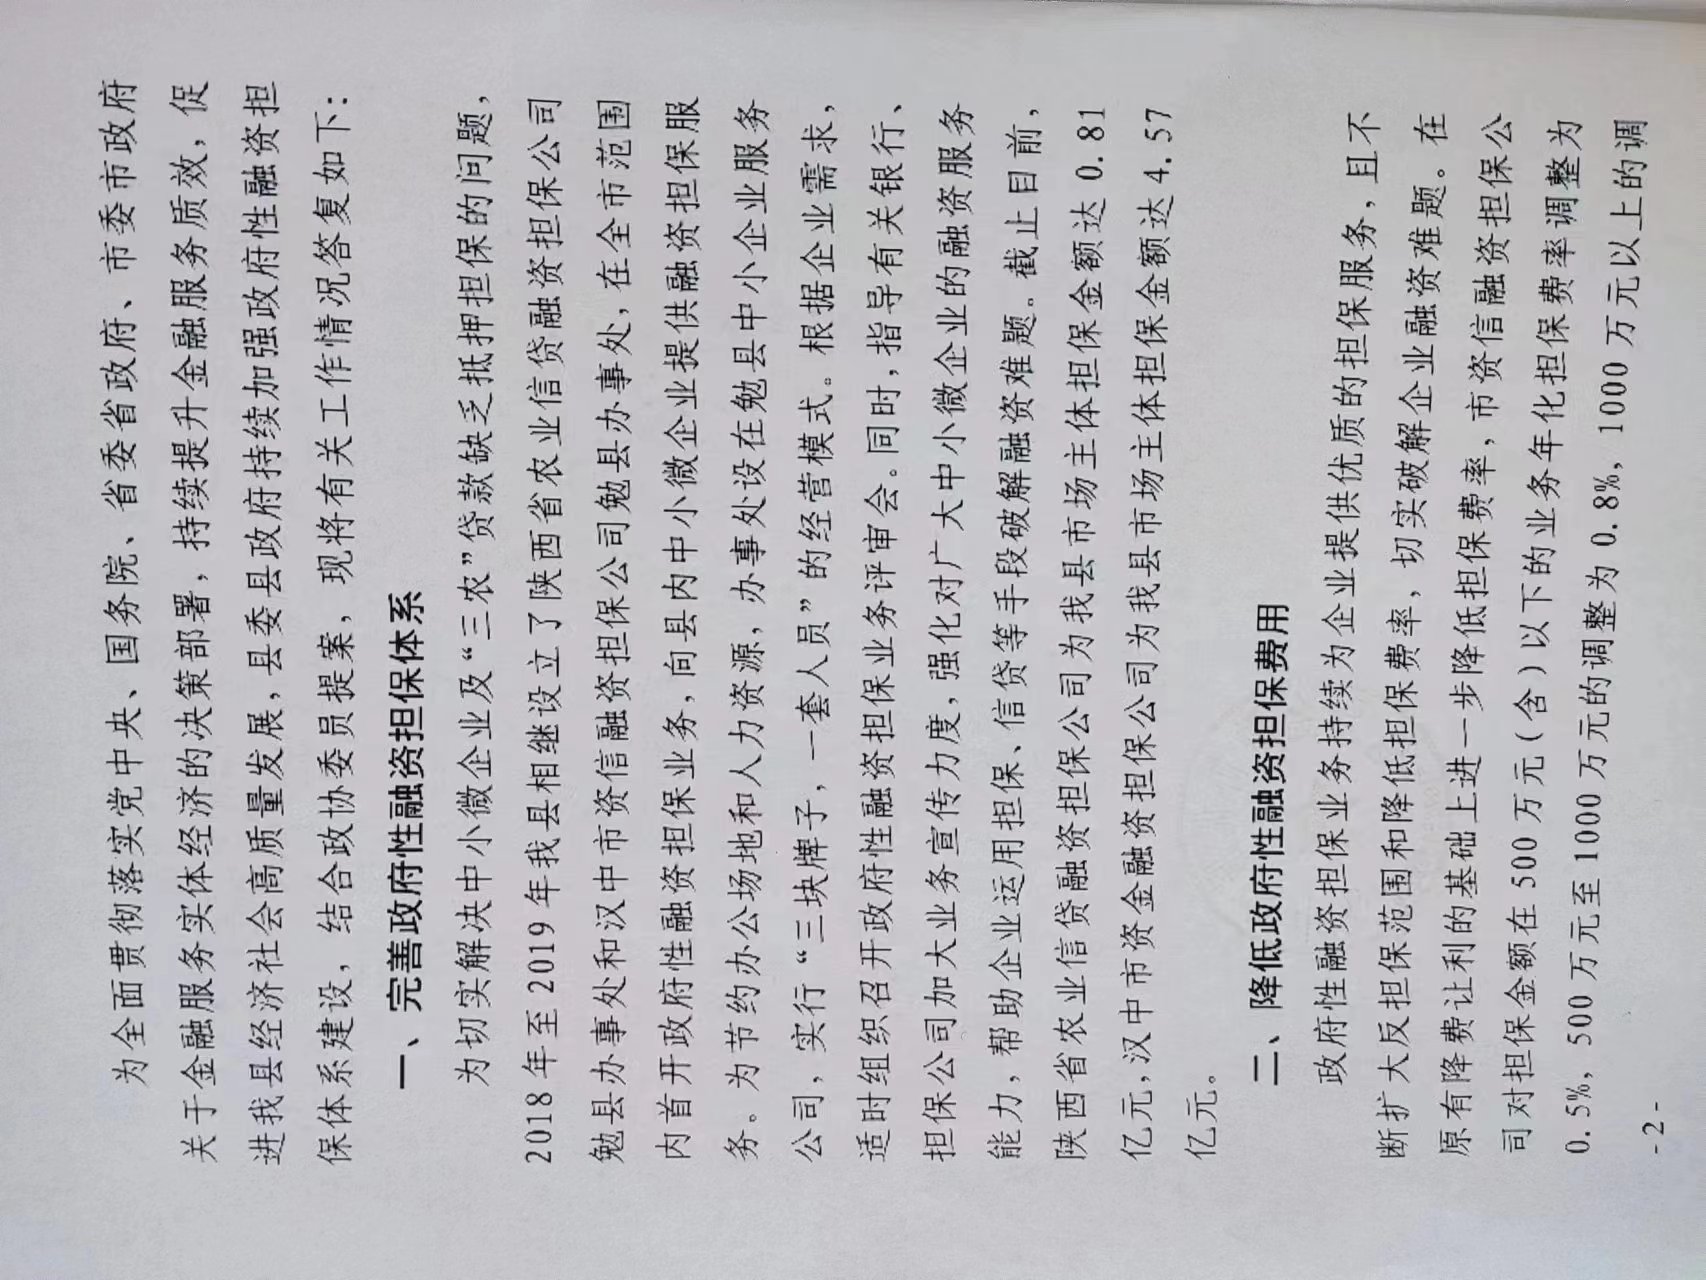 为全面贯彻落实党中央、国务院、省委省政府、市委市政府
关于金融服务实体经济的决策部署，持续提升金融服务质效，促
进我县经济社会高质量发展，县委县政府持续加强政府性融资担
保体系建设，结合政协委员提案，现将有关工作情况答复如下：
一、完善政府性融资担保体系
为切实解决中小微企业及“三农”贷款缺乏抵押担保的问题，
2018年至2019年我县相继设立了陕西省农业信贷融资担保公司
勉县办事处和汉中市资信融资担保公司勉县办事处，在全市范围
内首开政府性融资担保业务，向县内中小微企业提供融资担保服
务。为节约办公场地和人力资源，办事处设在勉县中小企业服务
公司，实行“三块牌子，一套人员”的经营模式。根据企业需求，
适时组织召开政府性融资担保业务评审会。同时，指导有关银行、
担保公司加大业务宣传力度，强化对广大中小微企业的融资服务
能力，帮助企业运用担保、信贷等手段破解融资难题。截止目前，
陕西省农业信贷融资担保公司为我县市场主体担保金额达0.81
亿元，汉中市资金融资担保公司为我县市场主体担保金额达4.57
亿元。
二、降低政府性融资担保费用
政府性融资担保业务持续为企业提供优质的担保服务，且不
断扩大反担保范围和降低担保费率，切实破解企业融资难题。在
原有降费让利的基础上进一步降低担保费率，市资信融资担保公
司对担保金额在500万元（含）以下的业务年化担保费率调整为
0.5%，500万元至1000万元的调整为0.8%，1000万元以上的调
-2-